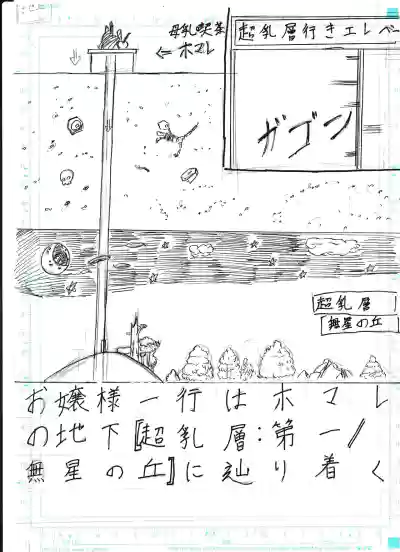 超乳層行きエレベー
母乳喫茶
⇐ホマレ
ガゴン
超乳層
無星の丘
お嬢様一行はホマレ
の地下『超乳層:第一/
無星の丘』に辿り着く